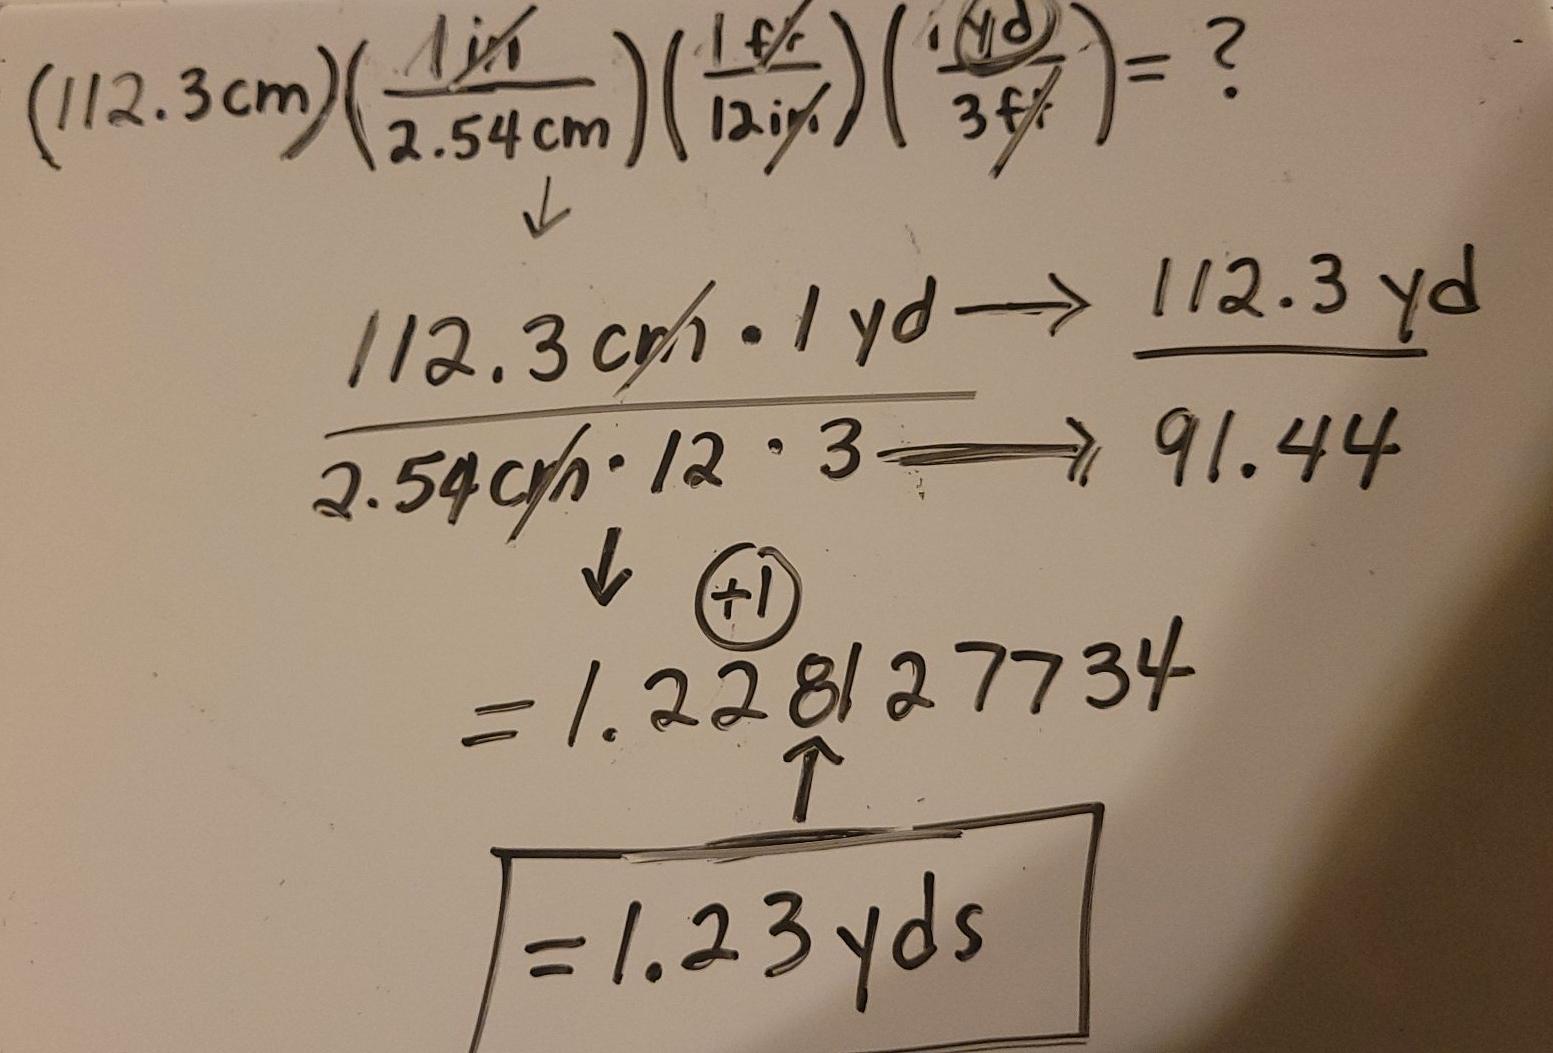 (112.3 cm)(1 in/2.54 cm)(1 ft/12 in)(1 yd/3 ft) = ?
↓
112.3 cm · 1 yd → 112.3 yd
2.54 cm · 12 · 3 → 91.44
↓ +1
= 1.228127734
↑
= 1.23 yds